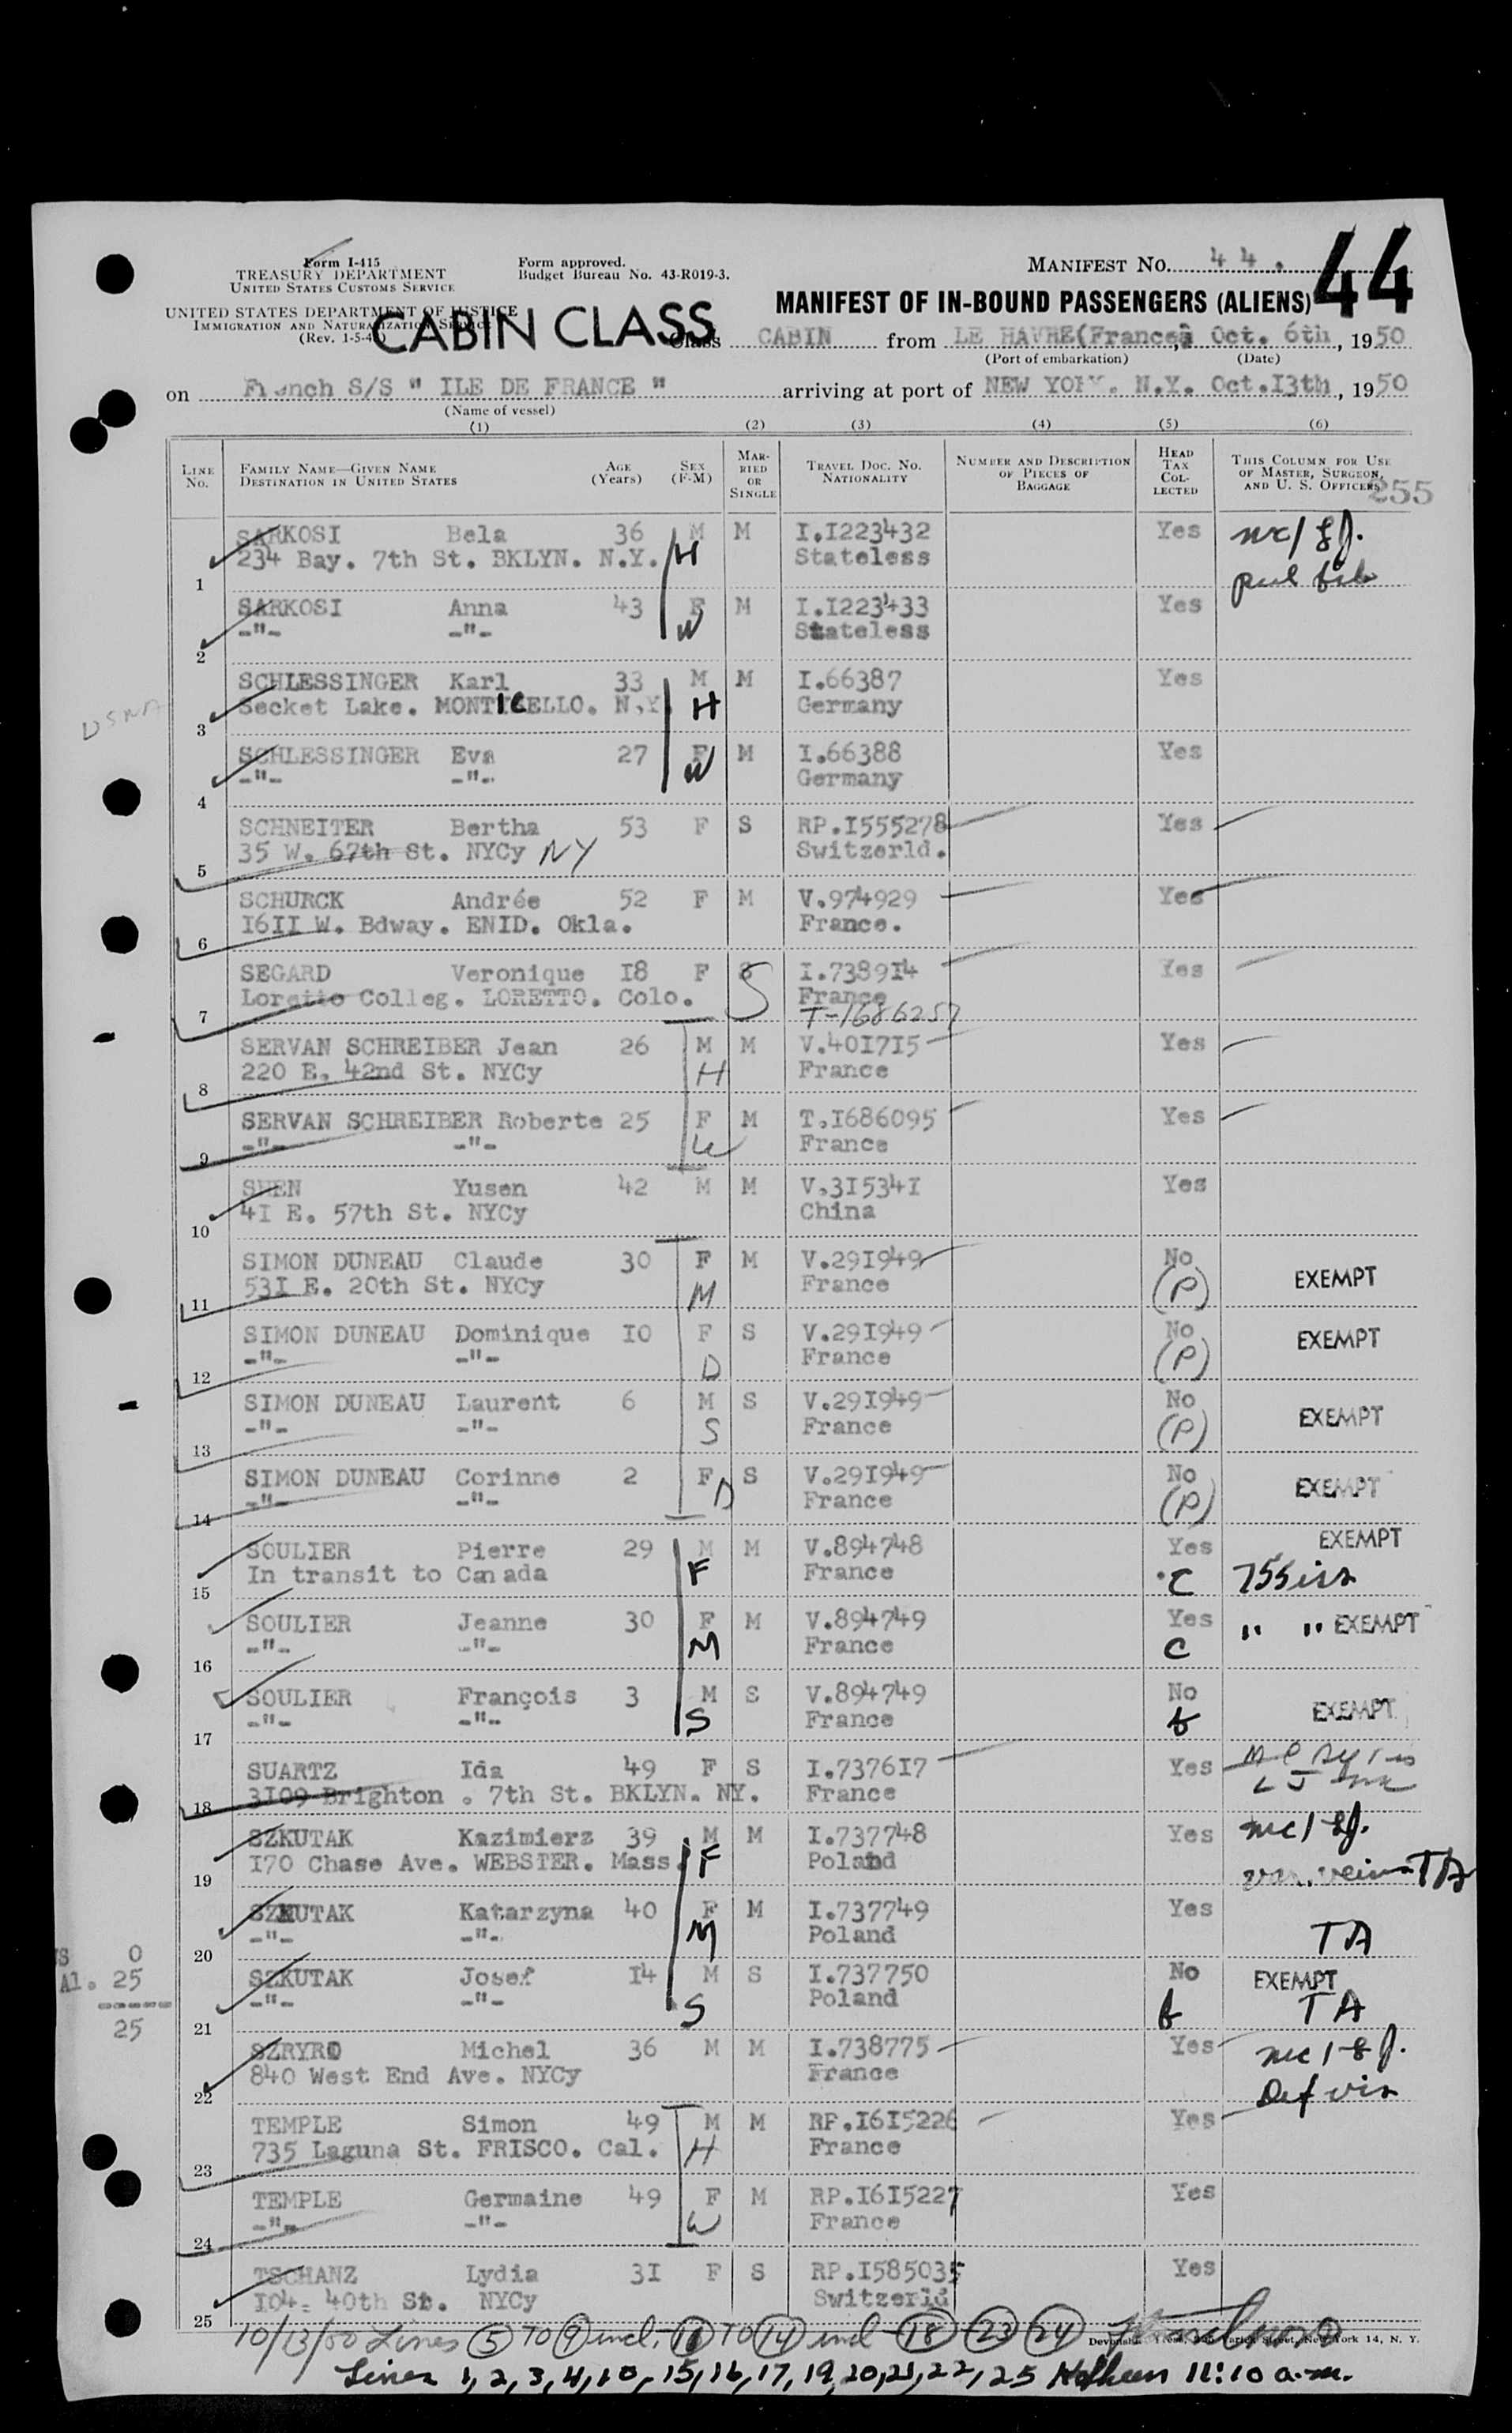 Form I-415
TREASURY DEPARTMENT
UNITED STATES CUSTOMS SERVICE
UNITED STATES DEPARTMENT OF JUSTICE
IMMIGRATION AND NATURALIZATION SERVICE
(Rev. 1-5-4
Form approved.
Budget Bureau No. 43-R019-3.
MANIFEST No. 44.
44
MANIFEST OF IN-BOUND PASSENGERS (ALIENS)
CABIN CLASS
Class CABIN from LE HAVRE(France), Oct. 6th, 1950
(Port of embarkation) (Date)
on French S/S " ILE DE FRANCE " arriving at port of NEW YORK. N.Y. Oct.I3th, 1950
(Name of vessel)
(1) (2) (3) (4) (5) (6)
LINE No. FAMILY NAME—GIVEN NAME DESTINATION IN UNITED STATES AGE (Years) SEX (F-M) MARRIED OR SINGLE TRAVEL DOC. NO. NATIONALITY NUMBER AND DESCRIPTION OF PIECES OF BAGGAGE HEAD TAX COLLECTED THIS COLUMN FOR USE OF MASTER, SURGEON, AND U. S. OFFICERS
255
SARKOSI Bela 36 M M I.I223432 Yes
234 Bay. 7th St. BKLYN. N.Y. H Stateless
1
SARKOSI Anna 43 F M I.I223433 Yes
-"- -"- W Stateless
2
SCHLESSINGER Karl 33 M M I.66387 Yes
Secket Lake. MONTICELLO. N.Y. H Germany
3
SCHLESSINGER Eva 27 F M I.66388 Yes
-"- -"- W Germany
4
SCHNEITER Bertha 53 F S RP.I555278 Yes
35 W. 67th St. NYCy NY Switzerld.
5
SCHURCK Andrée 52 F M V.974929 Yes
I6II W. Bdway. ENID. Okla. France.
6
SEGARD Veronique I8 F S I.7389I4 Yes
Loretto Colleg. LORETTO. Colo. S France
7 T-1686257
SERVAN SCHREIBER Jean 26 M M V.40I7I5 Yes
220 E. 42nd St. NYCy H France
8
SERVAN SCHREIBER Roberte 25 F M T.I686095 Yes
-"- -"- W France
9
SHEN Yusen 42 M M V.3I534I Yes
4I E. 57th St. NYCy China
10
SIMON DUNEAU Claude 30 F M V.29I949 No EXEMPT
53I E. 20th St. NYCy M France (P)
11
SIMON DUNEAU Dominique I0 F S V.29I949 No EXEMPT
-"- -"- D France (P)
12
SIMON DUNEAU Laurent 6 M S V.29I949 No EXEMPT
-"- -"- S France (P)
13
SIMON DUNEAU Corinne 2 F S V.29I949 No EXEMPT
-"- -"- D France (P)
14
SOULIER Pierre 29 M M V.894748 Yes EXEMPT
In transit to Canada F France C
15
SOULIER Jeanne 30 F M V.894749 Yes " " EXEMPT
-"- -"- M France C
16
SOULIER François 3 M S V.894749 No EXEMPT
-"- -"- S France
17
SUARTZ Ida 49 F S I.7376I7 Yes
3I09 Brighton . 7th St. BKLYN. NY. France
18
SZKUTAK Kazimierz 39 M M I.737748 Yes
I70 Chase Ave. WEBSTER. Mass. F Poland TA
19
SZKUTAK Katarzyna 40 F M I.737749 Yes
-"- -"- M Poland TA
20
SZKUTAK Josef I4 M S I.737750 No EXEMPT
-"- -"- S Poland TA
21
US 0
Al. 25
-----
25
SZRYRO Michel 36 M M I.738775 Yes
840 West End Ave. NYCy France Def vis
22
TEMPLE Simon 49 M M RP.I6I5226 Yes
735 Laguna St. FRISCO. Cal. H France
23
TEMPLE Germaine 49 F M RP.I6I5227 Yes
-"- -"- W France
24
TSCHANZ Lydia 3I F S RP.I585035 Yes
I04. 40th St. NYCy Switzerld
25
10/13/50 Lines 5 TO 9 incl. 11 TO 14 incl - 18 23 24
Street, New York 14, N. Y.
Lines 1, 2, 3, 4, 10, 15, 16, 17, 19, 20, 21, 22, 25 11:10 a.m.